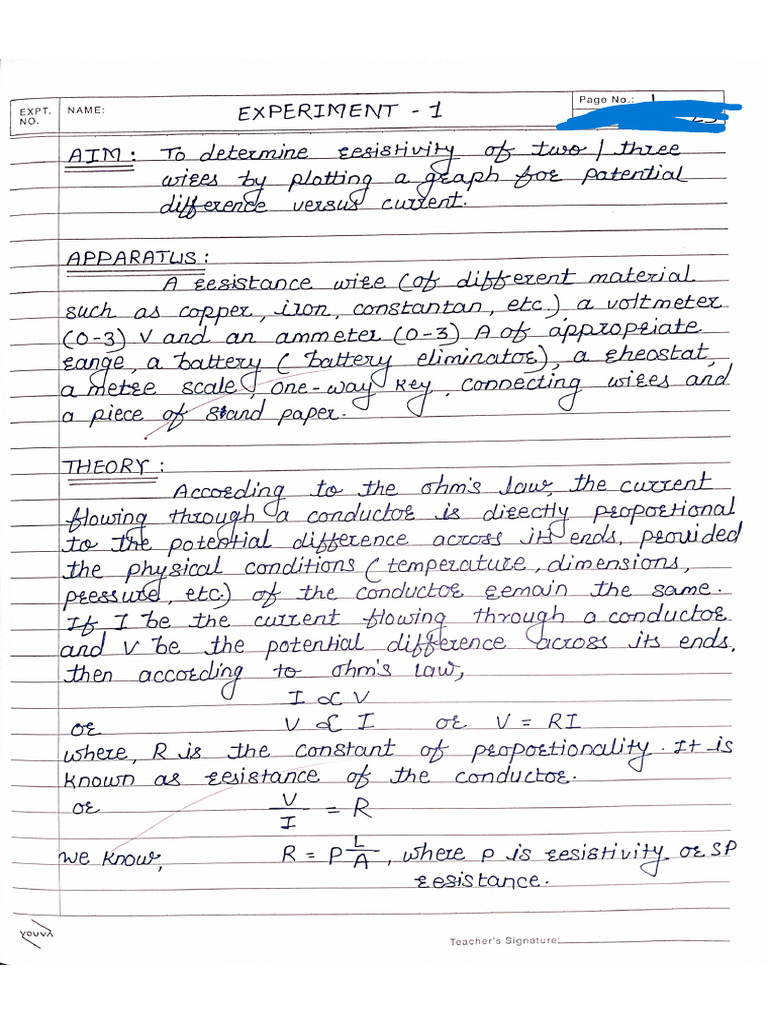 EXPT. NO.
NAME:
EXPERIMENT - 1
Page No.: 1
AIM: To determine resistivity of two / three
wires by plotting a graph for potential
difference versus current.
APPARATUS:
A resistance wire (of different material
such as copper, iron, constantan, etc.), a voltmeter
(0-3) V and an ammeter (0-3) A of appropriate
range, a battery (battery eliminator), a rheostat,
a metre scale, one-way key, connecting wires and
a piece of sand paper.
THEORY:
According to the ohm's law, the current
flowing through a conductor is directly proportional
to the potential difference across its ends, provided
the physical conditions (temperature, dimensions,
pressure, etc.) of the conductor remain the same.
If I be the current flowing through a conductor
and V be the potential difference across its ends,
then according to ohm's law,
I ∝ V
or V ∝ I or V = RI
where, R is the constant of proportionality. It is
known as resistance of the conductor.
or V/I = R
we know, R = P L/A, where p is resistivity or SP
resistance.
youva
Teacher's Signature: